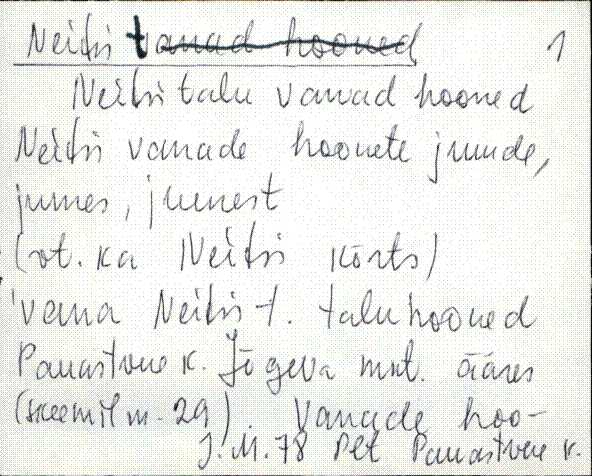 Neitsi t. vanad hooned 1
Neitsi talu vanad hooned
Neitsi vanade hoonete juurde,
juures, juurest
(vt. ka Neitsi kõrts)
vana Neitsi t. taluhooned
Panastvere k. Jõgeva mnt. ääres
(skeemil nr. 29). Vanade hoo-
J.M. 78 Plt Panastvere k.